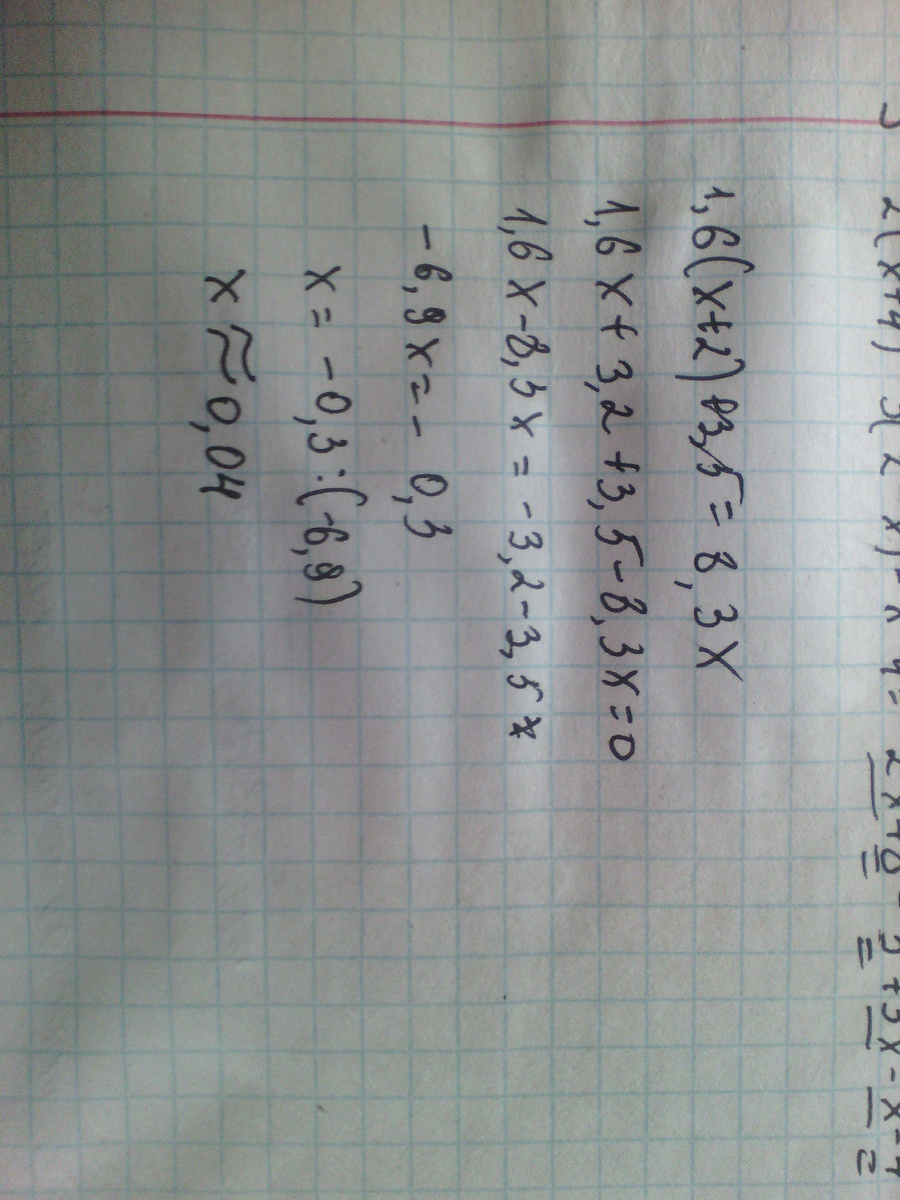 2(x+4)
2x+8
+3x-x-4
1,6(x+2)+3,5=8,3x
1,6x+3,2+3,5-8,3x=0
1,6x-8,3x=-3,2-3,5x
-6,9x=-0,3
x=-0,3:(-6,9)
x≈0,04